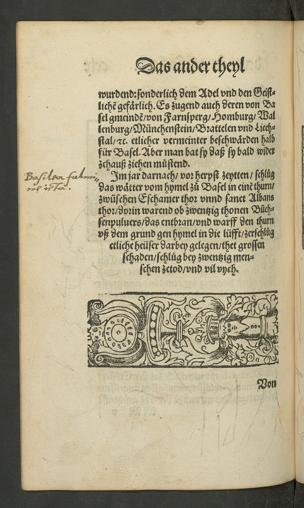 Das ander theyl
wurdend: sonderlich dem Adel vnd den Geist-
lichē gefärlich. Es zugend auch deren von Ba
sel gmeindē/ von Farnsperg/ Homburg/ Wal
lenburg/ Münchenstein/ Brattelen vnd Liech-
stal/ ꝛc. etlicher vermeinter beschwärden halb
für Basel. Aber man bat sy das sy bald wider
zehauß ziehen müstend.
Im jar darnach/ vor herpst zeytten/ schlůg
das wätter vom hymel zů Basel in einē thurn/
zwüschen Eschamer thor vnnd sanct Albans
thor/ dorin warend ob zwentzig thonen Büch-
senpuluers/ das entbran/ vnd warff den thurn
vß dem grund gen hymel in die lüfft/ zerschlůg
etliche heüser darbey gelegen/ thet grossen
schaden/ schlůg bey zwentzig men-
schen zetod/ vnd vil vych.
Basilea
Von